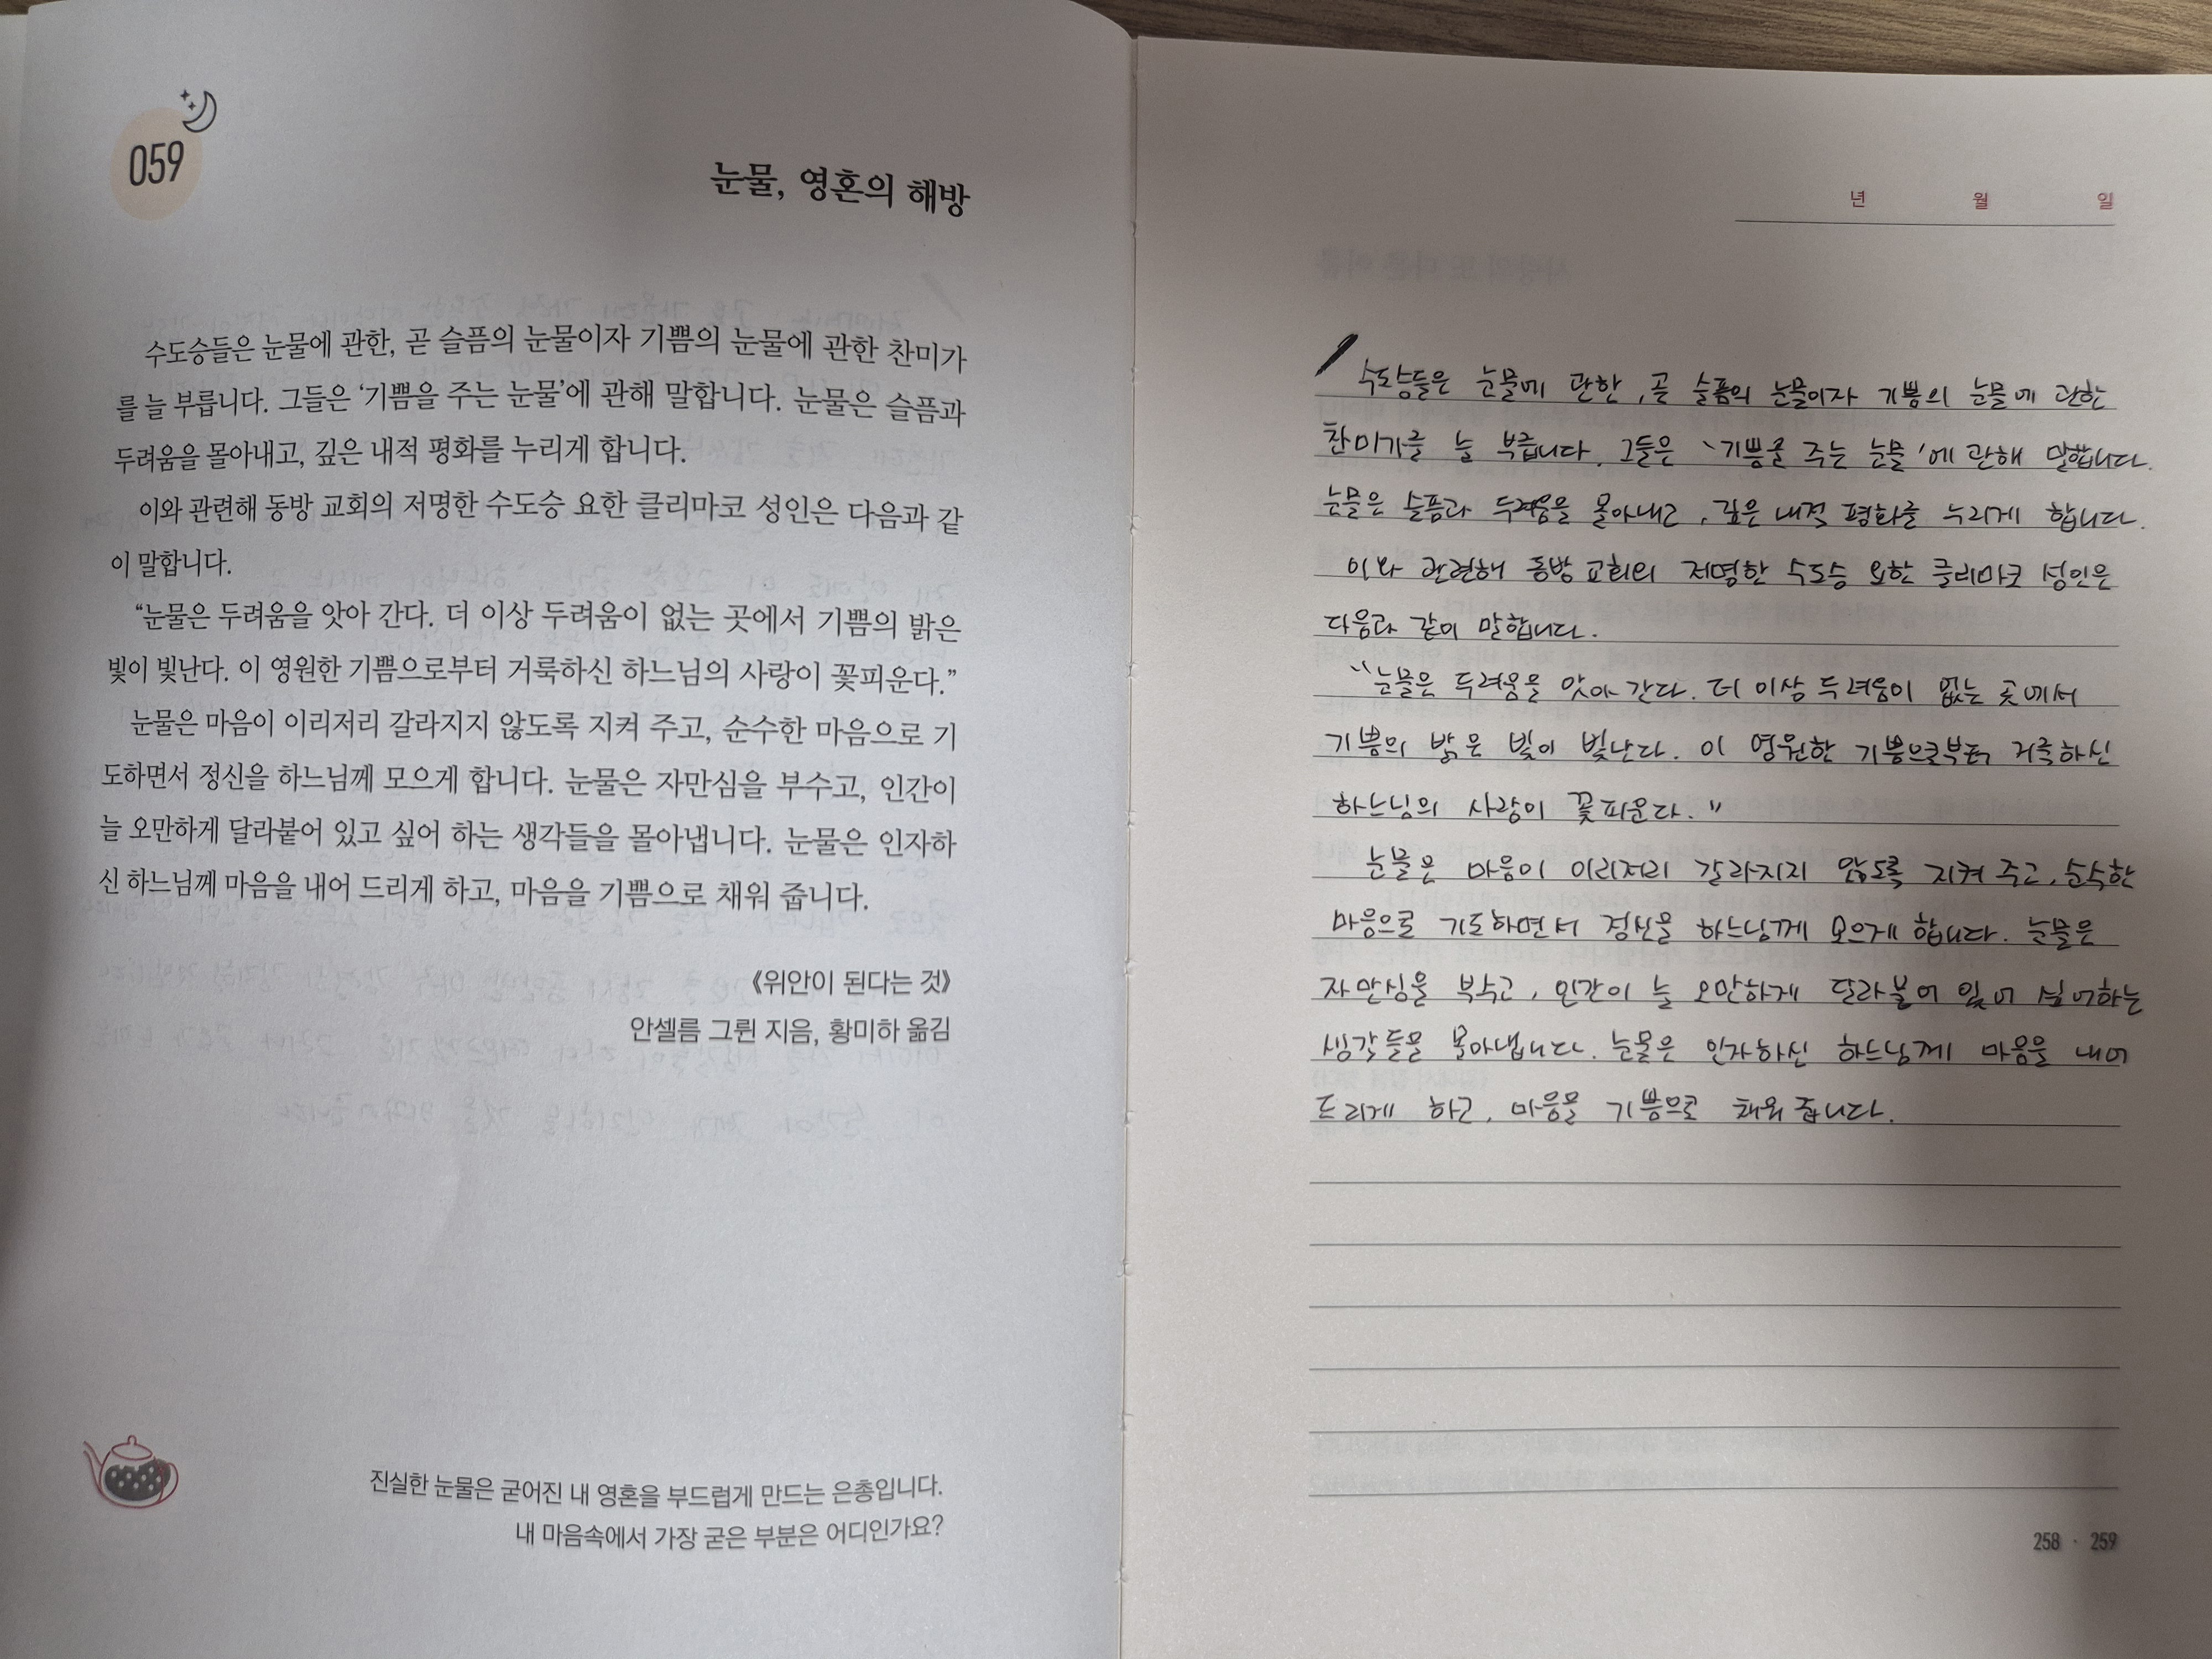 059
눈물, 영혼의 해방
수도승들은 눈물에 관한, 곧 슬픔의 눈물이자 기쁨의 눈물에 관한 찬미가
를 늘 부릅니다. 그들은 ‘기쁨을 주는 눈물’에 관해 말합니다. 눈물은 슬픔과
두려움을 몰아내고, 깊은 내적 평화를 누리게 합니다.
이와 관련해 동방 교회의 저명한 수도승 요한 클리마코 성인은 다음과 같
이 말합니다.
“눈물은 두려움을 앗아 간다. 더 이상 두려움이 없는 곳에서 기쁨의 밝은
빛이 빛난다. 이 영원한 기쁨으로부터 거룩하신 하느님의 사랑이 꽃피운다.”
눈물은 마음이 이리저리 갈라지지 않도록 지켜 주고, 순수한 마음으로 기
도하면서 정신을 하느님께 모으게 합니다. 눈물은 자만심을 부수고, 인간이
늘 오만하게 달라붙어 있고 싶어 하는 생각들을 몰아냅니다. 눈물은 인자하
신 하느님께 마음을 내어 드리게 하고, 마음을 기쁨으로 채워 줍니다.
《위안이 된다는 것》
안셀름 그륀 지음, 황미하 옮김
진실한 눈물은 굳어진 내 영혼을 부드럽게 만드는 은총입니다.
내 마음속에서 가장 굳은 부분은 어디인가요?
년 월 일
수도승들은 눈물에 관한, 곧 슬픔의 눈물이자 기쁨의 눈물에 관한
찬미가를 늘 부릅니다. 그들은 ‘기쁨을 주는 눈물’에 관해 말합니다.
눈물은 슬픔과 두려움을 몰아내고, 깊은 내적 평화를 누리게 합니다.
이와 관련해 동방 교회의 저명한 수도승 요한 클리마코 성인은
다음과 같이 말합니다.
“눈물은 두려움을 앗아 간다. 더 이상 두려움이 없는 곳에서
기쁨의 밝은 빛이 빛난다. 이 영원한 기쁨으로부터 거룩하신
하느님의 사랑이 꽃피운다.”
눈물은 마음이 이리저리 갈라지지 않도록 지켜 주고, 순수한
마음으로 기도하면서 정신을 하느님께 모으게 합니다. 눈물은
자만심을 부수고, 인간이 늘 오만하게 달라붙어 있어 싶어하는
생각들을 몰아냅니다. 눈물은 인자하신 하느님께 마음을 내어
드리게 하고, 마음을 기쁨으로 채워 줍니다.
258 · 259